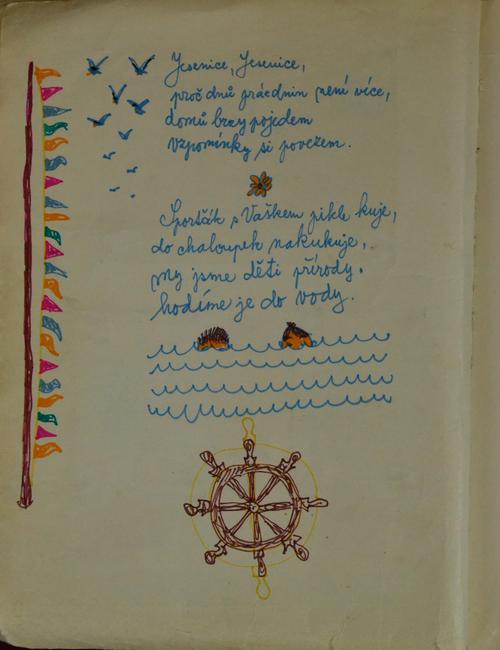 Jesenice, Jesenice,
proč dnů prázdnin není více,
domů brzy pojedem
vzpomínky si povezem.
Sporťák s Vaškem pikle kuje,
do chaloupek nakukuje,
my jsme děti přírody,
hodíme je do vody.